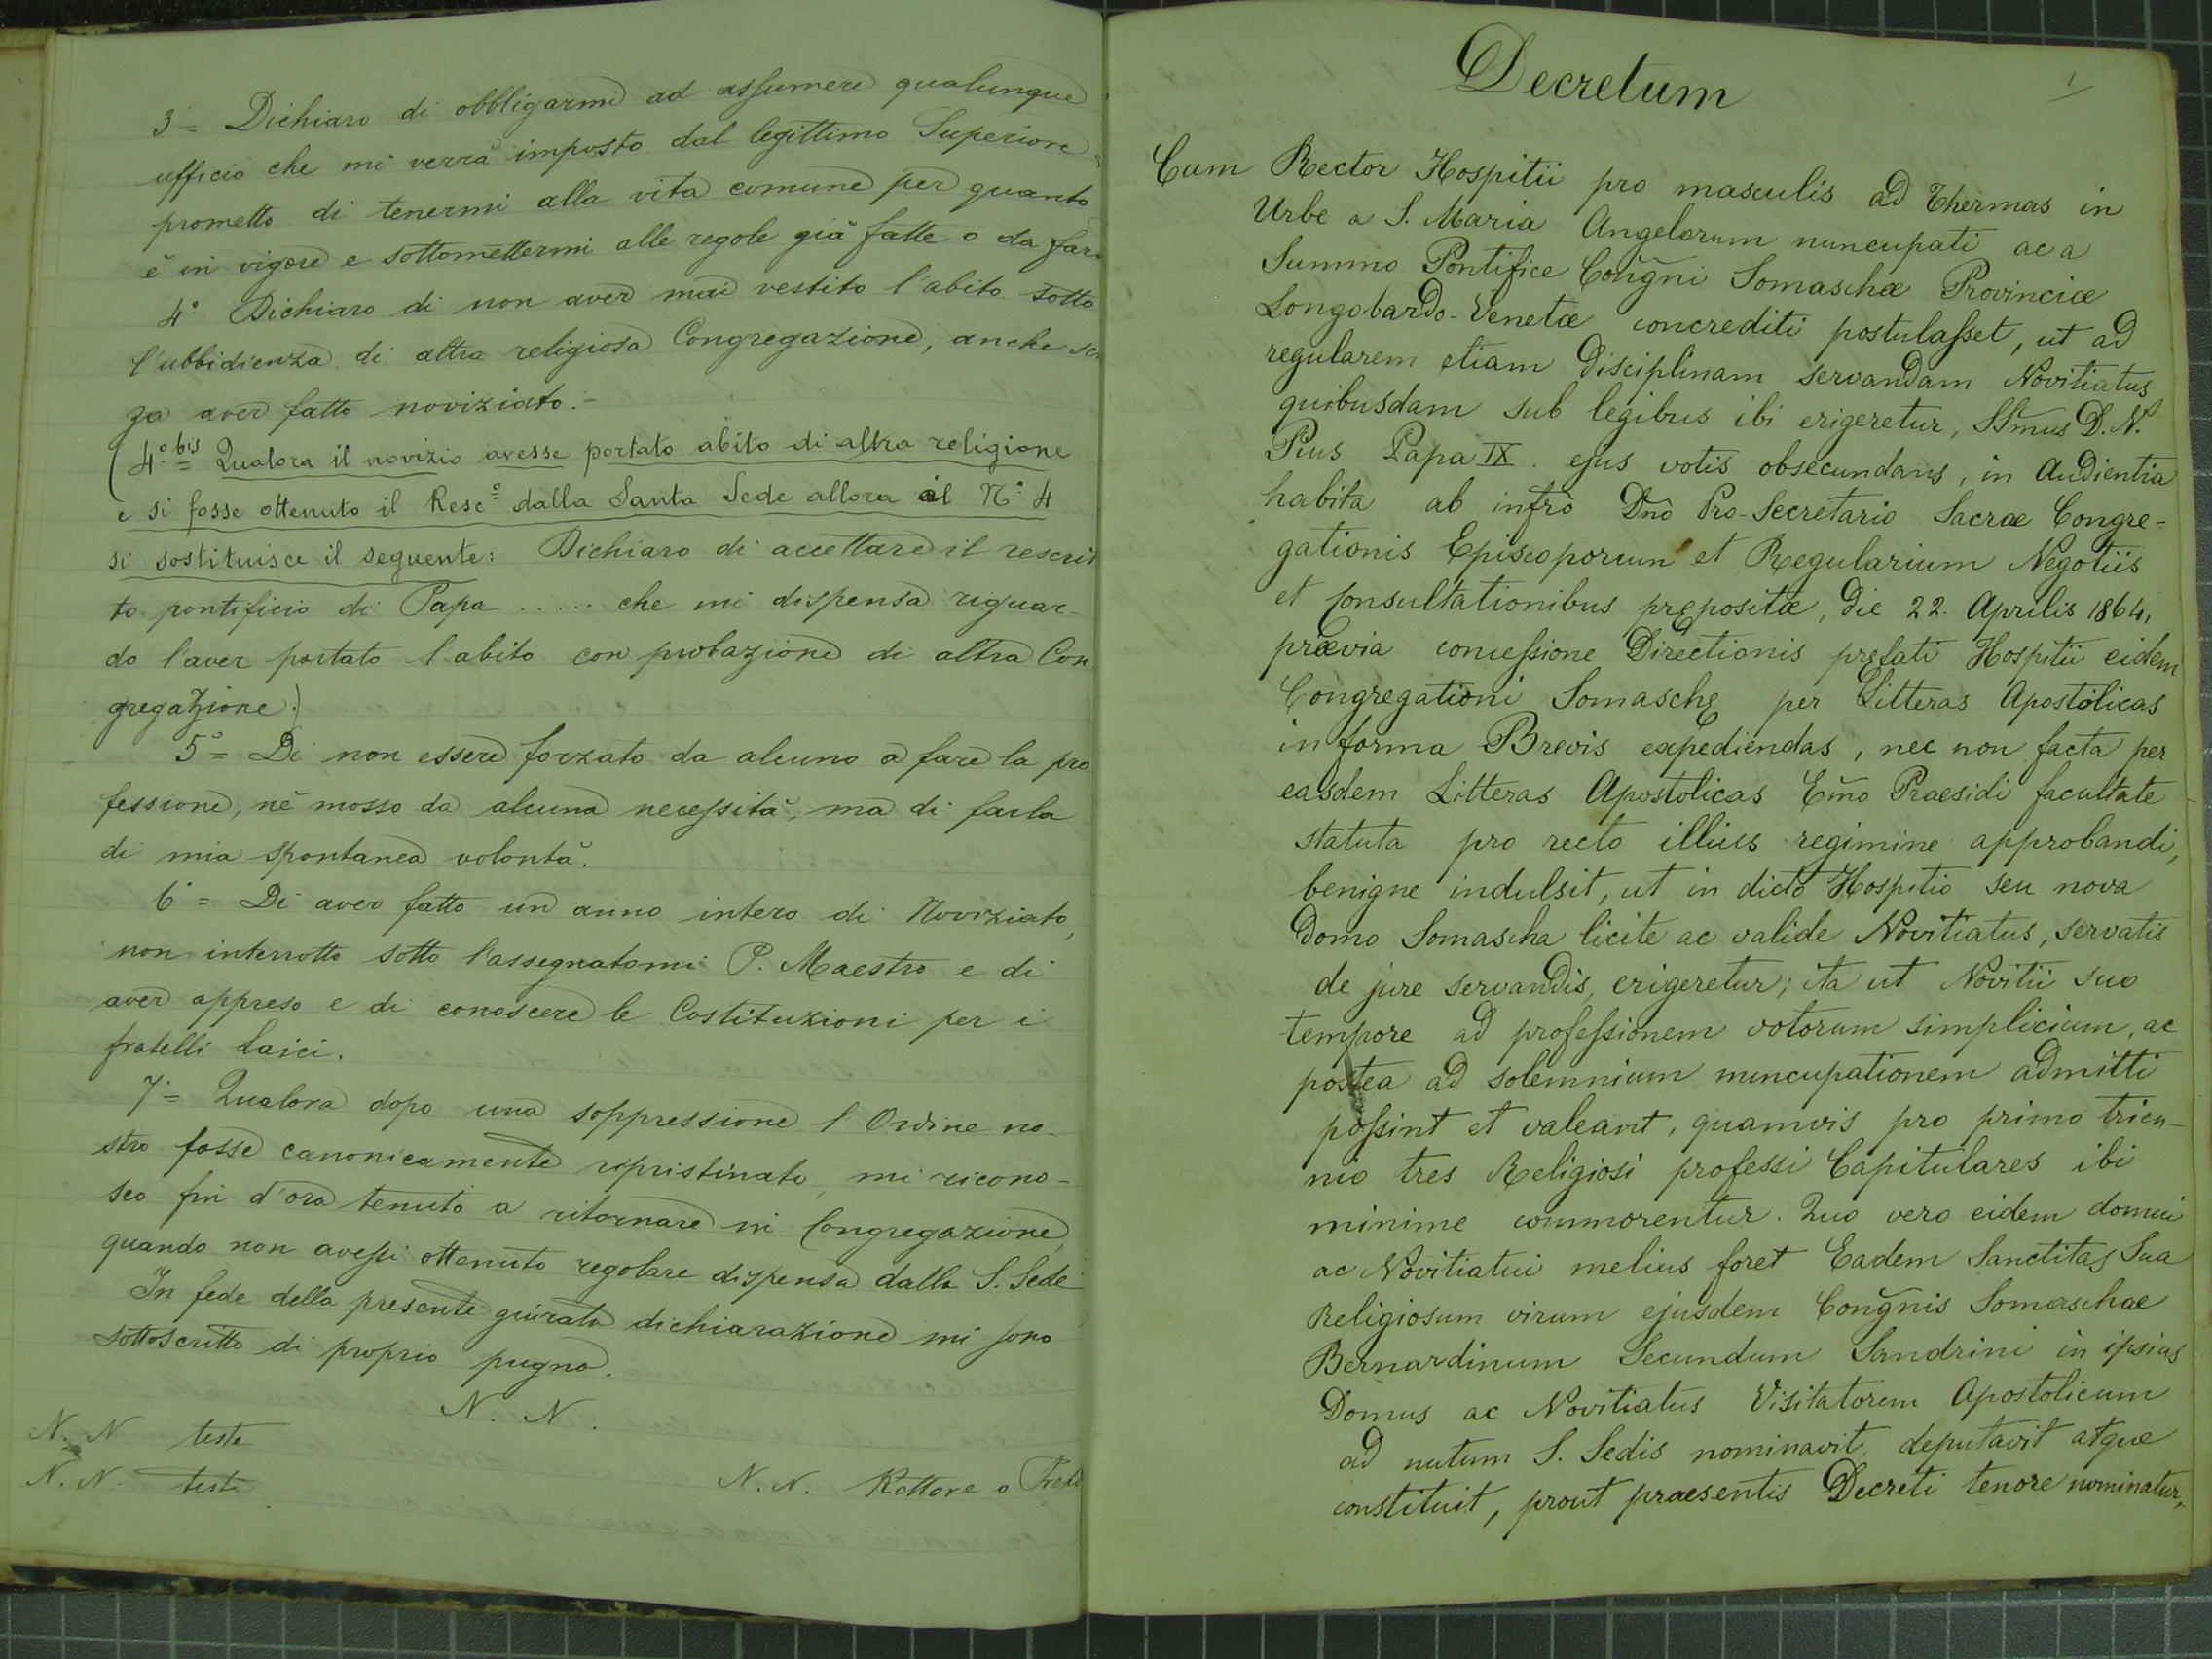 3 = Dichiaro di obbligarmi ad assumere qualunque
ufficio che mi verrà imposto dal legittimo Superiore
prometto di tenermi alla vita comune per quanto
è in vigore e sottomettermi alle regole già fatte o da far
4° Dichiaro di non aver mai vestito l'abito sotto
l'ubbidienza di altra religiosa Congregazione, anche se
za aver fatto noviziato.-
(4° bis = Qualora il novizio avesse portato abito di altra religione
e si fosse ottenuto il Resc° dalla Santa Sede allora al N° 4
si sostituisce il seguente: Dichiaro di accettare il rescrit
to pontificio di Papa ..... che mi dispensa riguar-
do l'aver portato l'abito con probazione di altra Con-
gregazione.)
5° = Di non essere forzato da alcuno a fare la pro
fessione, nè mosso da alcuna necessità, ma di farla
di mia spontanea volontà.
6° = Di aver fatto un anno intero di Noviziato,
non interrotto sotto l'assegnatomi P. Maestro e di
aver appreso e di conoscere le Costituzioni per i
fratelli Laici.
7° = Qualora dopo una soppressione l'Ordine no-
stro fosse canonicamente ripristinato, mi ricono-
sco fin d'ora tenuto a ritornare in Congregazione,
quando non avessi ottenuto regolare dispensa dalla S. Sede
In fede della presente giurata dichiarazione mi sono
sottoscritto di proprio pugno.
N. N.
N. N teste
N. N. teste
N. N. Rettore o
Decretum
1
Cum Rector Hospitii pro masculis ad Thermas in
Urbe a S. Maria Angelorum nuncupati ac a
Summo Pontifice Congñi Somaschæ Provinciæ
Longobardo-Venetæ concrediti postulasset, ut ad
regularem etiam Disciplinam servandam Novitiatus
quibusdam sub legibus ibi erigeretur, SSmus D. N.
Pius Papa IX. ejus votis obsecundans, in Audientia
habita ab infrõ Dnõ Pro-Secretario Sacræ Congre=
gationis Episcoporum et Regularium Negotiis
et Consultationibus prępositæ, die 22. Aprilis 1864,
prævia concessione Directionis pręfati Hospitii eidem
Congregationi Somaschę per Litteras Apostolicas
in forma Brevis expediendas, nec non facta per
easdem Litteras Apostolicas Emõ Praesidi facultate
statuta pro recto illius regimine approbandi,
benigne indulsit, ut in dicto Hospitio seu nova
Domo Somascha licite ac valide Novitiatus, servatis
de jure servandis, erigeretur; ita ut Novitii suo
tempore ad professionem votorum simplicium, ac
postea ad solemnium nuncupationem admitti
possint et valeant, quamvis pro primo trien-
nio tres Religiosi professi Capitulares ibi
minime commorentur. Quo vero eidem domui
ac Novitiatui melius foret Eadem Sanctitas Sua
Religiosum virum ejusdem Congñis Somaschae
Bernardinum Secundum Sandrini in ipsius
Domus ac Novitiatus Visitatorem Apostolicum
ad nutum S. Sedis nominavit, deputavit atque
constituit, prout praesentis Decreti tenore nominatur,